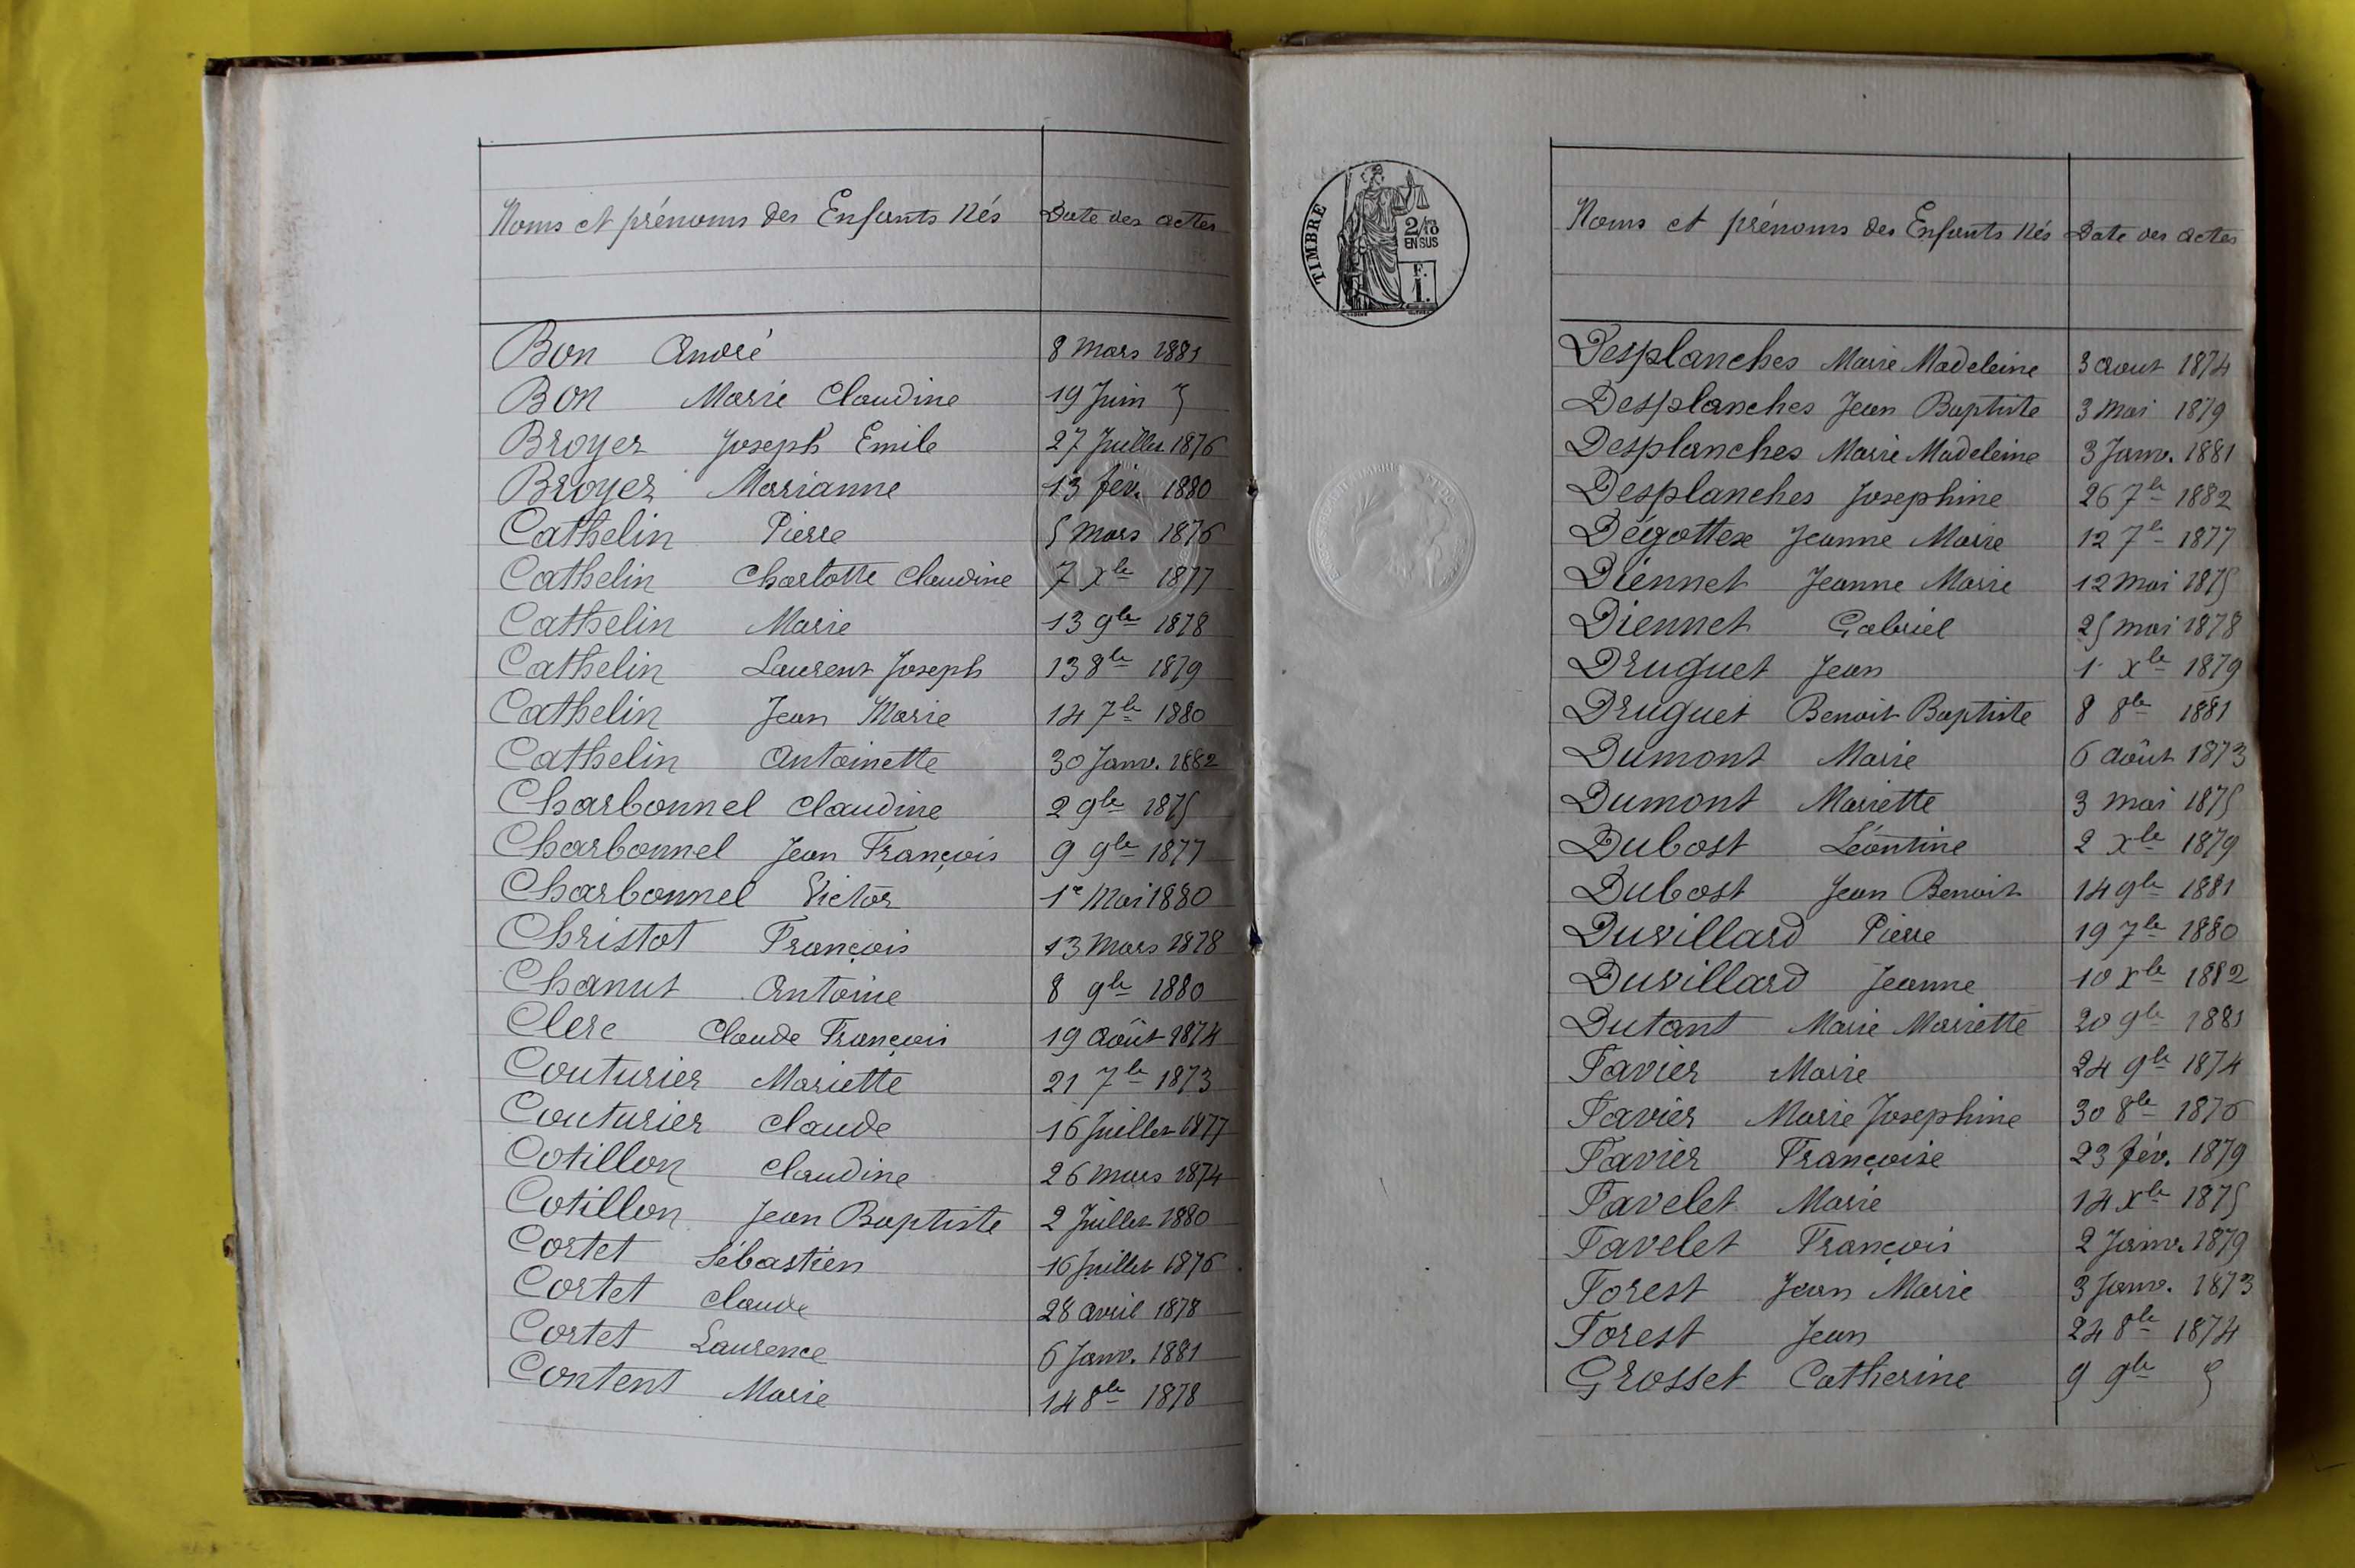 Noms et prénoms des Enfants Nés Date des actes
Bon André 8 Mars 1881
Bon Marie Claudine 19 Juin
Broyer Joseph Emile 27 Juillet 1876
Broyer Marianne 13 fév. 1880
Cathelin Pierre 5 Mars 1876
Cathelin Charlotte Claudine 7 Xbe 1877
Cathelin Marie 13 9be 1878
Cathelin Laurent Joseph 13 8be 1879
Cathelin Jean Marie 14 7be 1880
Cathelin Antoinette 30 Janv. 1882
Charbonnel Claudine 2 9be 1875
Charbonnel Jean François 9 9be 1877
Charbonnel Victor 1er Mai 1880
Christot François 13 Mars 1878
Chanut Antoine 8 9be 1880
Clerc Claude François 19 Août 1874
Couturier Mariette 21 7be 1873
Couturier Claude 16 Juillet 1877
Cotillon Claudine 26 Mars 1874
Cotillon Jean Baptiste 2 Juillet 1880
Cortet Sébastien 16 Juillet 1876
Cortet Claude 28 Avril 1878
Cortet Laurence 6 Janv. 1881
Content Marie 14 8be 1878
TIMBRE
2/10
EN SUS
F.
1.
Noms et prénoms des Enfants Nés Date des actes
Desplanches Marie Madeleine 3 Aout 1874
Desplanches Jean Baptiste 3 Mai 1879
Desplanches Marie Madeleine 3 Janv. 1881
Desplanches Josephine 26 7be 1882
Dégottex Jeanne Marie 12 7be 1877
Diennet Jeanne Marie 12 Mai 1875
Diennet Gabriel 25 Mai 1878
Druguet Jean 1r Xbe 1879
Druguet Benoit Baptiste 8 8be 1881
Dumont Marie 6 Août 1873
Dumont Mariette 3 Mai 1875
Dubost Léontine 2 Xbe 1879
Dubost Jean Benoit 14 9be 1881
Duvillard Pierre 19 7be 1880
Duvillard Jeanne 10 Xbe 1882
Dutant Marie Mariette 20 9be 1881
Favier Marie 24 9be 1874
Favier Marie Josephine 30 8be 1876
Favier Françoise 23 fév. 1879
Favelet Marie 14 Xbe 1875
Favelet François 2 Janv. 1879
Forest Jean Marie 3 Janv. 1873
Forest Jean 24 8be 1874
Grosset Catherine 9 9be